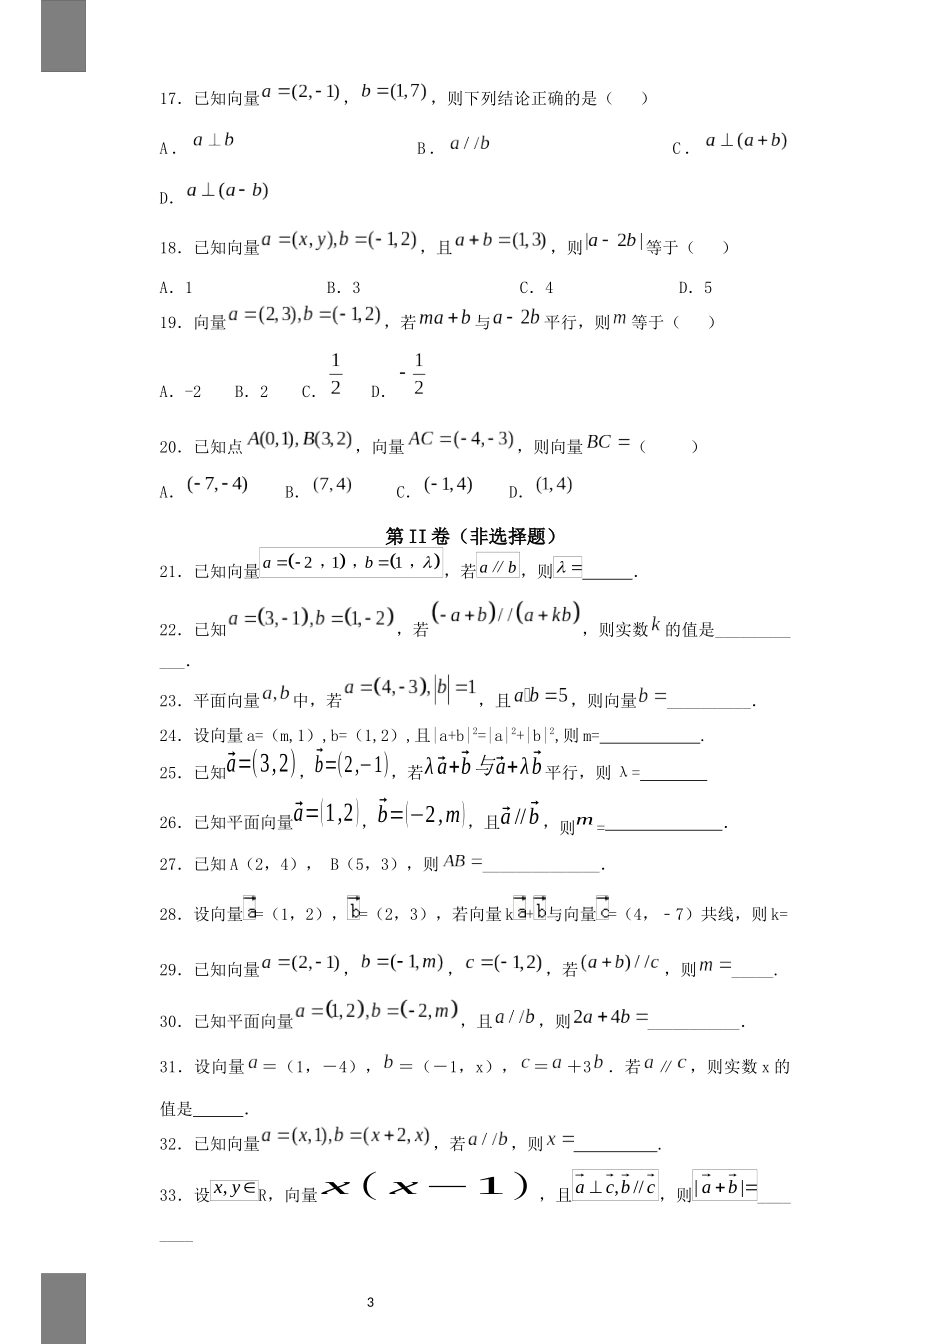 17．已知向量a＝(2,-1)，b＝(1,7)，则下列结论正确的是（  ）
A．a⊥b B．a//b C．a⊥(a+b)
D．a⊥(a-b)
18．已知向量a＝(x,y),b＝(-1,2)，且a+b＝(1,3)，则|a-2b|等于（  ）
A．1 B．3 C．4 D．5
19．向量a＝(2,3),b＝(-1,2)，若ma+b与a-2b平行，则m等于（  ）
A．-2 B．2 C．1/2 D．-1/2
20．已知点A(0,1),B(3,2)，向量AC＝(-4,-3)，则向量BC＝（  ）
A．(-7,-4) B．(7,4) C．(-1,4) D．(1,4)
第 II 卷（非选择题）
21．已知向量a=(-2，1)，b=(1，λ)，若a∥b，则λ=______．
22．已知a＝(3,-1),b＝(1,-2)，若(-a+b)//(a+kb)，则实数k的值是_________
___．
23．平面向量a,b中，若a＝(4,-3),|b|＝1，且a▯b＝5，则向量b＝__________．
24．设向量 a=（m,1）,b=（1,2）,且|a+b|²=|a|²+|b|²,则 m=____________．
25．已知a⃗=(3,2)，b⃗=(2,−1)，若λa⃗+b⃗与a⃗+λb⃗平行，则 λ=________
26．已知平面向量a⃗=(1,2)，b⃗=(−2,m)，且a⃗//b⃗，则m=______________．
27．已知 A（2，4）， B（5，3），则AB＝______________．
28．设向量a⃗=（1，2），b⃗=（2，3），若向量 ka⃗+b⃗与向量c⃗=（4，﹣7）共线，则 k=
29．已知向量a＝(2,-1)，b＝(-1,m)，c＝(-1,2)，若(a+b)//c，则m＝_____．
30．已知平面向量a＝(1,2),b＝(-2,m)，且a//b，则2a+4b＝___________．
31．设向量a＝（1，－4），b＝（－1，x），c＝a＋3b．若a∥c，则实数 x 的
值是______．
32．已知向量a＝(x,1),b＝(x+2,x)，若a//b，则x＝__________．
33．设x,y∈R，向量x(x—1)，且a⃗⊥c⃗,b⃗//c⃗，则|a⃗+b⃗|=____
____
3